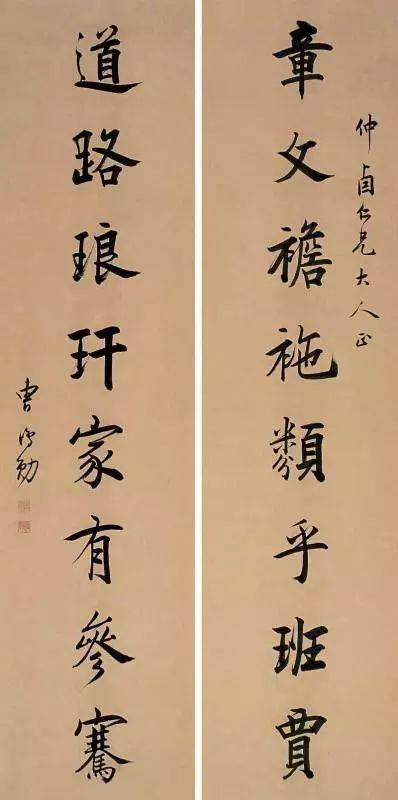 仲仁兄大人正
章文襜袘類乎班賈
道路琅玕家有參騫
曹鴻勛